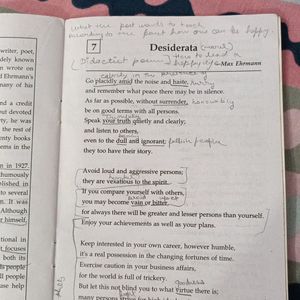 What the poet wants to teach
according to the poet how one can be happy.
7
Desiderata
How to lead a
Didactic poem
happy life
-Max Ehrmann
Go placidly amid the noise and haste,
and remember what peace there may be in silence.
As far as possible, without surrender,
be on good terms with all persons.
Speak your truth quietly and clearly;
and listen to others,
even to the dull and ignorant; foolish people
they too have their story.
Avoid loud and aggressive persons;
they are vexatious to the spirit.
If you compare yourself with others,
you may become vain or bitter,
for always there will be greater and lesser persons than yourself.
Enjoy your achievements as well as your plans.
Keep interested in your own career, however humble,
it's a real possession in the changing fortunes of time.
Exercise caution in your business affairs,
for the world is full of trickery.
But let this not blind you to what virtue there is;
many persons
writer, poet,
dely known
n wrote on
d Ehrmann's
many of his
nd a credit
but devoted
ty, he was
the rest of
nty books
oems to the
n in 1927.
humously
blished in
to several
n. It was
Although
r himself,
tional in
t, focuses
both its
ls people
ll people
ase help